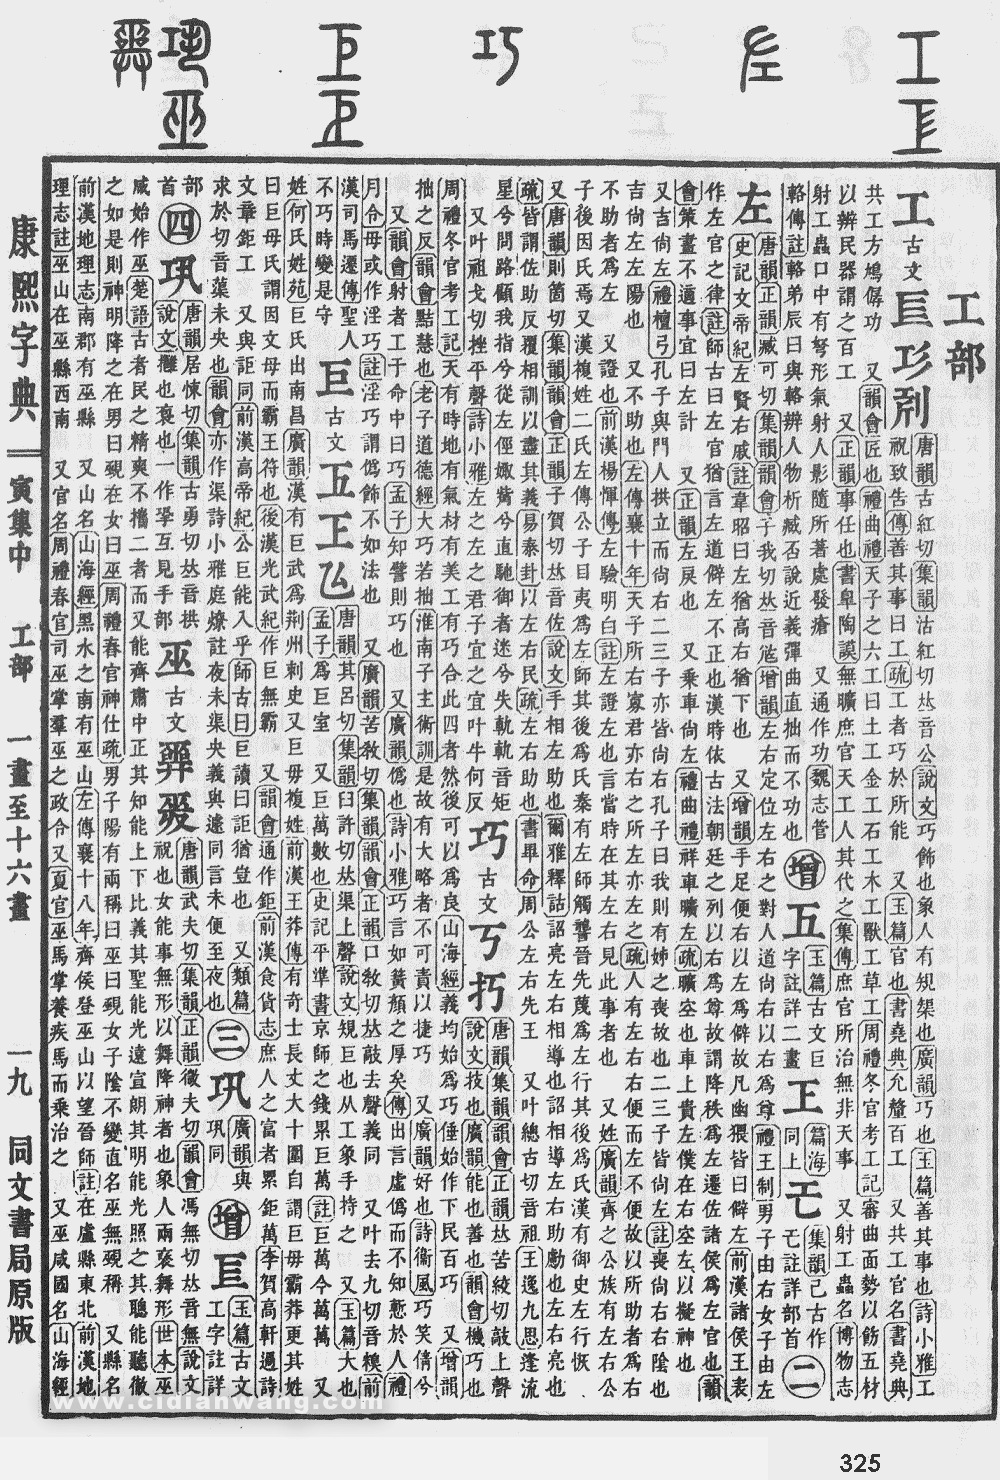 工部
工 古文 唐韻古紅切集韻沽紅切𠀤音公說文巧飾也象人有規榘也廣韻巧也玉篇善其事也詩小雅工
祝致告傳善其事曰工疏工者巧於所能 又玉篇官也書堯典允釐百工 又共工官名書堯典
共工方鳩僝功 又韻會匠也禮曲禮天子之六工曰土工金工石工木工獸工草工周禮冬官考工記審曲面勢以飭五材
以辨民器謂之百工 又正韻事任也書臯陶謨無曠庶官天工人其代之集傳庶官所治無非天事 又射工蟲名博物志
射工蟲口中有弩形氣射人影隨所著處發瘡 又通作功魏志管
輅傳註輅弟辰曰與輅辨人物析臧否說近義彈曲直拙而不功也 增 玉篇古文巨字註詳二畫 篇海同上 集韻己古作 註詳部首 二
左 唐韻正韻臧可切集韻韻會子我切𠀤音 增韻左右定位左右之對人道尚右以右爲尊禮王制男子由右女子由左
史記文帝紀左賢右戚註韋昭曰左猶高右猶下也 又增韻手足便右以左爲僻故凡幽猥皆曰僻左前漢諸侯王表
作左官之律註師古曰左官猶言左道僻左不正也漢時依古法朝廷之列以右爲尊故謂降秩爲左遷佐諸侯爲左官也韻
會策畫不適事宜曰左計 又正韻左戾也 又乗車尚左禮曲禮祥車曠左疏曠空也車上貴左僕在右空左以擬神也
又吉尚左禮檀弓孔子與門人拱立而尚右二三子亦皆尚右孔子曰我則有姊之喪故也二三子皆尚左註喪尚右右陰也
吉尚左左陽也 又不助也左傳襄十年天子所右寡君亦右之所左亦左之疏人有左右右便而左不便故以所助者爲右
不助者爲左 又證也前漢楊惲傳左驗明白註左證左也言當時在其左右見此事者也 又姓廣韻齊之公族有左右公
子後因氏焉又漢複姓二氏左傳公子目夷爲左師其後爲氏秦有左師觸讋晉先蔑爲左行其後爲氏漢有御史左行恢
又唐韻則箇切集韻韻會正韻子賀切𠀤音佐說文手相左助也爾雅釋詁詔亮左右相導也詔相導左右助勴也左右亮也
疏皆謂佐助反覆相訓以盡其義易泰卦以左右民疏左右助也書畢命周公左右先王 又叶總古切音祖王逸九思逢流
星兮問路顧我指兮從左俓娵觜兮直馳御者迷兮失軌軌音矩
又叶祖戈切挫平聲詩小雅左之左之君子宜之宜叶牛何反 巧 古文 丂 唐韻集韻韻會正韻𠀤苦絞切敲上聲說文技也廣韻能也善也韻會機巧也
周禮冬官考工記天有時地有氣材有美工有巧合此四者然後可以爲良山海經義均始爲巧倕始作下民百巧 又增韻
拙之反韻會點慧也老子道德經大巧若拙淮南子主術訓是故有大略者不可責以捷巧 又廣韻好也詩衞風巧笑倩兮
又韻會射者工于命中曰巧孟子知譬則巧也 又廣韻僞也詩小雅巧言如簧顏之厚矣傳出言虛僞而不知慙於人禮
月令毋或作淫巧註淫巧謂僞飾不如法也 又廣韻苦敎切集韻韻會正韻口敎切𠀤敲去聲義同 又叶去九切音糗前
漢司馬遷傳聖人不巧時變是守 巨 古文 唐韻其呂切集韻臼許切𠀤渠上聲說文規巨也从工象手持之 又玉篇大也
孟子爲巨室 又巨萬數也史記平準書京師之錢累巨萬註巨萬今萬萬 又
姓何氏姓苑巨氏出南昌廣韻漢有巨武爲荆州刺史又巨毋複姓前漢王莽傳有奇士長丈大十圍自謂巨毋霸莽更其姓
曰巨母氏謂因文母而霸王符也後漢光武紀作巨無霸 又韻會通作鉅前漢食貨志庶人之富者累鉅萬李賀高軒過詩
文章鉅工 又與詎同前漢高帝紀公巨能入乎師古曰巨讀曰詎猶豈也 又類篇
求於切音蕖未央也韻會亦作渠詩小雅庭燎註夜未渠央義與遽同言未便至夜也 三 巩 廣韻與巩同 增 玉篇古文工字註詳
部首 四 唐韻居悚切集韻古勇切𠀤音拱說文攤也褱也一作 互見手部 巫 古文 唐韻武夫切集韻正韻微夫切韻會馮無切𠀤音無說文
祝也女能事無形以舞降神者也象人兩褎舞形世本巫
咸始作巫楚語古者民之精爽不攜二者而又能齊肅中正其知能上下比義其聖能光遠宣朗其明能光照之其聰能聽徹
之如是則神明降之在男曰覡在女曰巫周禮春官神仕疏男子陽有兩稱曰巫曰覡女子陰不變直名巫無覡稱 又縣名
前漢地理志南郡有巫縣 又山名山海經黑水之南有巫山左傳襄十八年齊侯登巫山以望晉師註在盧縣東北前漢地
理志註巫山在巫縣西南 又官名周禮春官司巫掌羣巫之政令又夏官巫馬掌養疾馬而乗治之 又巫咸國名山海經
康熙字典
寅集中 工部 一畫至十六畫
一九 同文書局原版
www.cidianwang.com
325